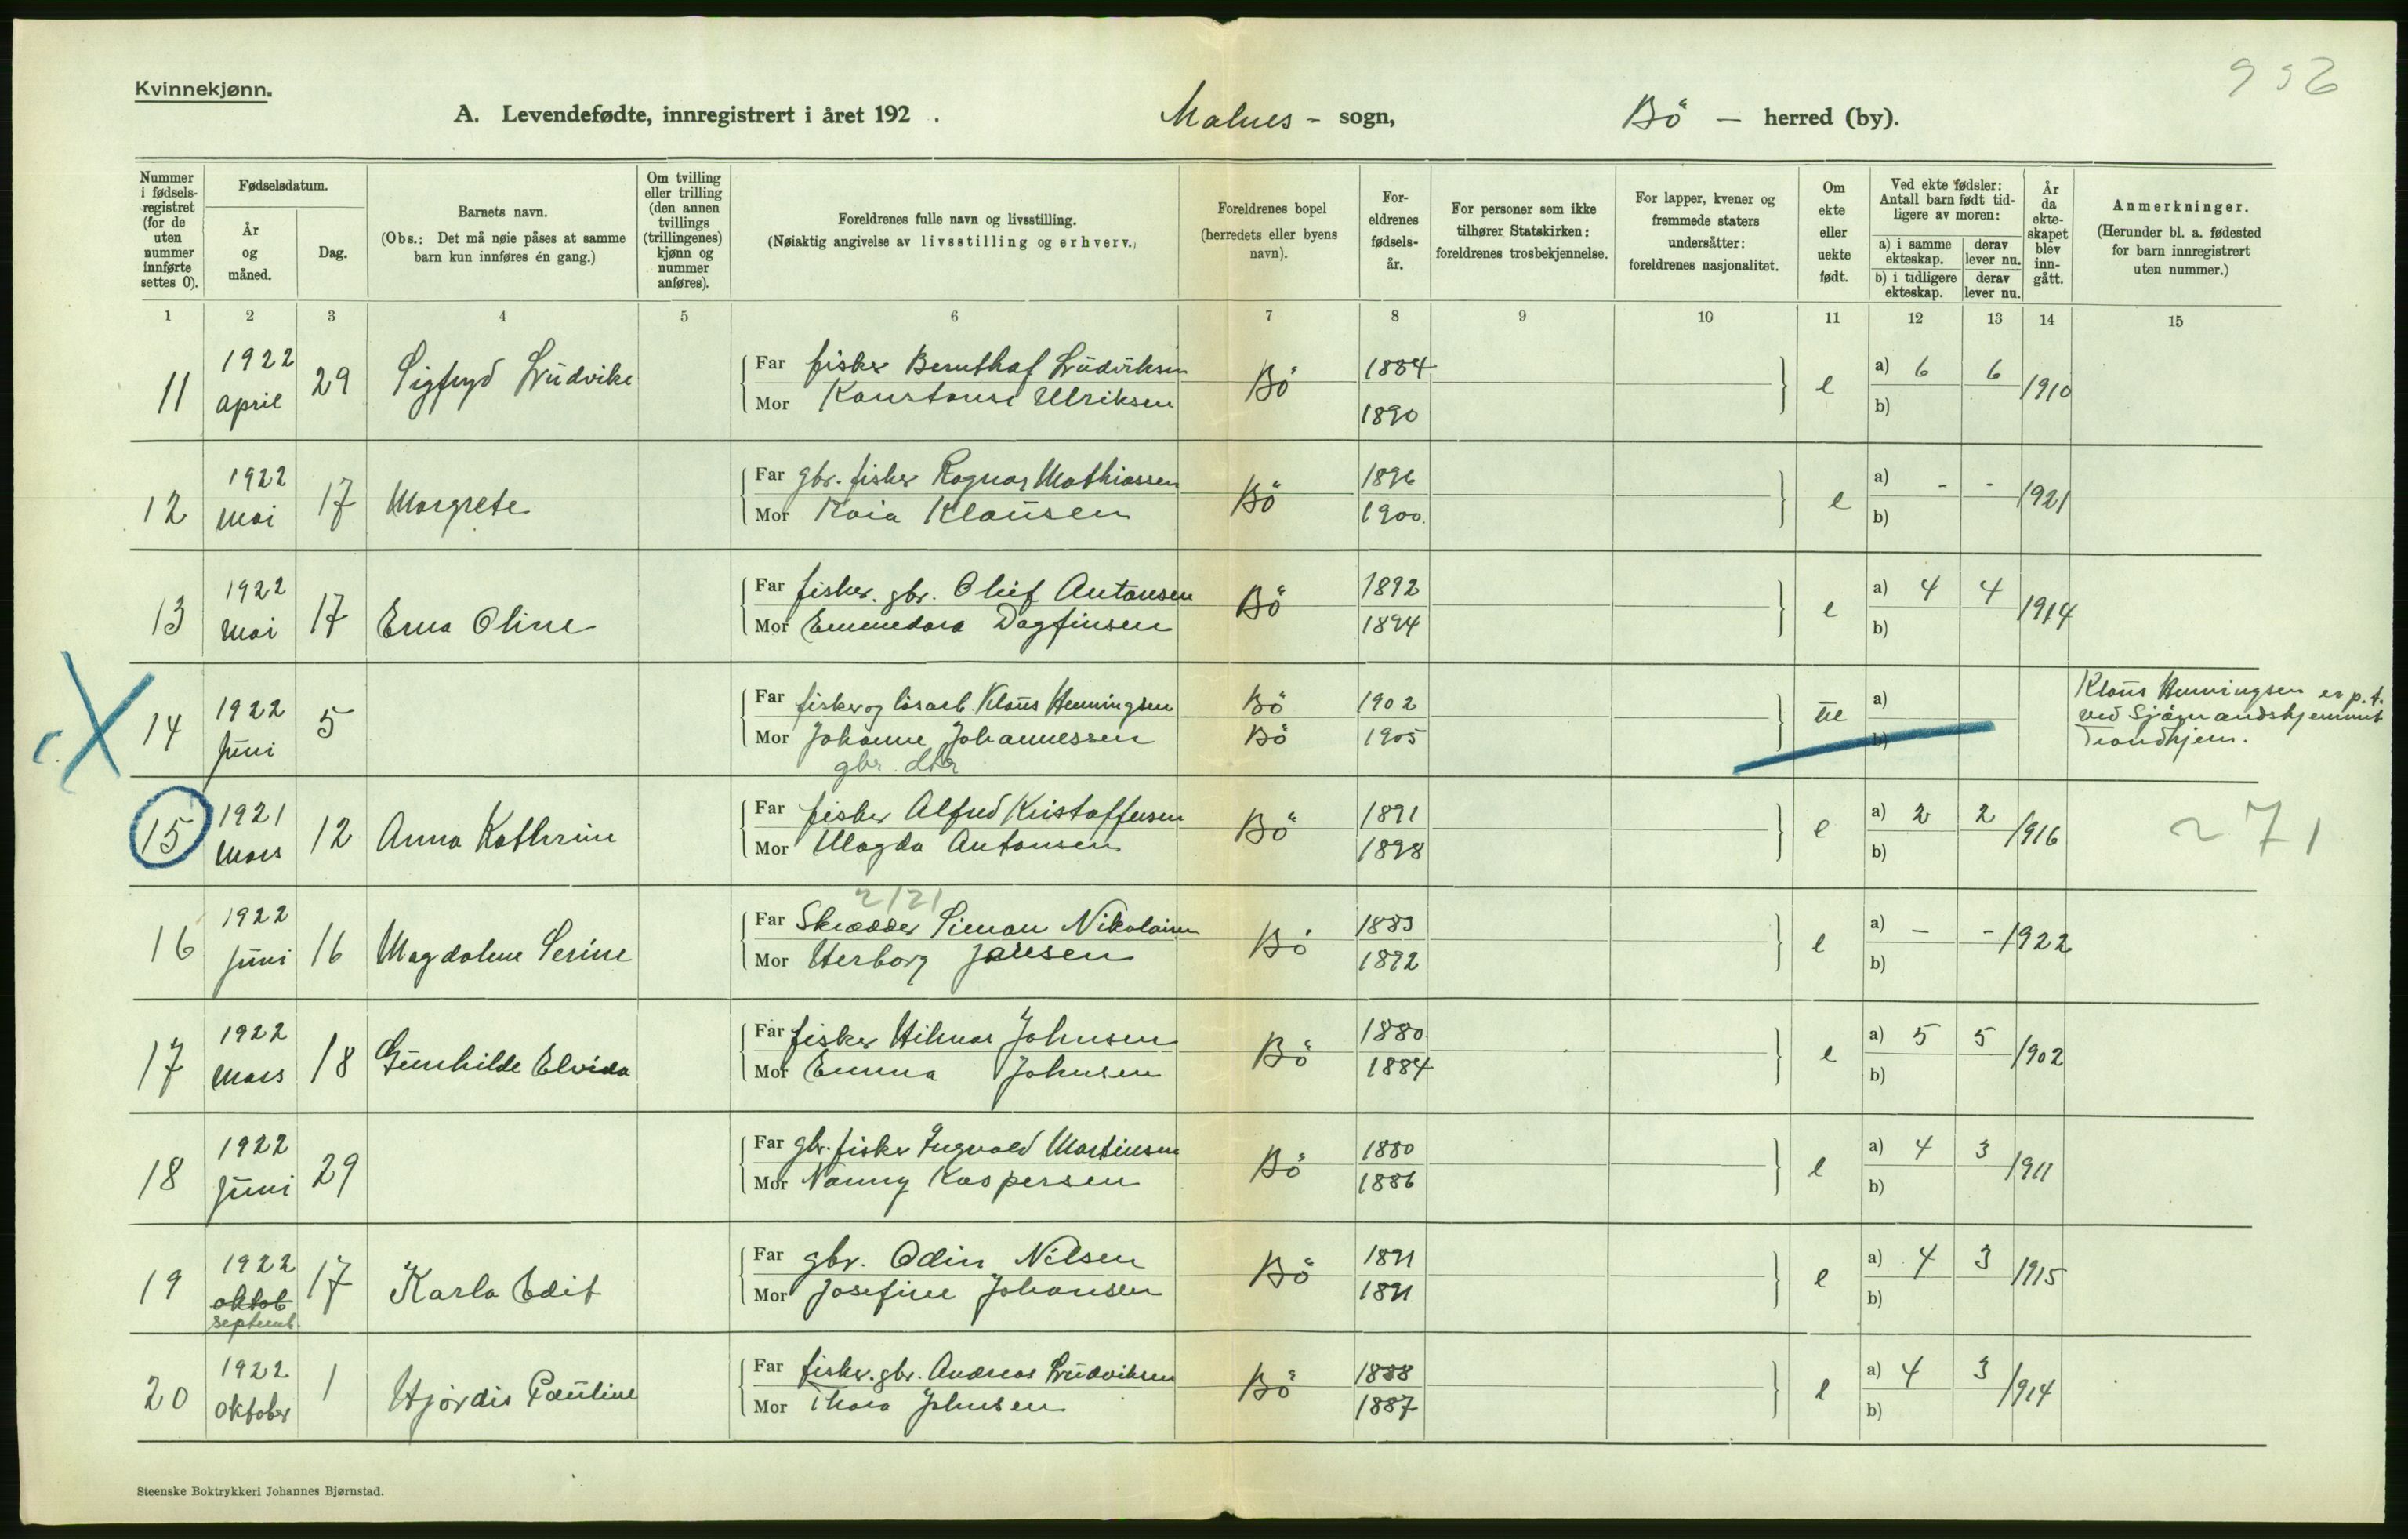 952
Kvinnekjønn.
A. Levendefødte, innregistrert i året 192 . Malnes - sogn, Bö — herred (by).
Nummer i fødsels-registret (for de uten nummer innførte settes 0).
Fødselsdatum.
År og måned.
Dag.
Barnets navn.
(Obs.: Det må nøie påses at samme barn kun innføres én gang.)
Om tvilling eller trilling (den annen tvillings (trillingenes) kjønn og nummer anføres).
Foreldrenes fulle navn og livsstilling.
(Nøiaktig angivelse av livsstilling og erhverv.)
Foreldrenes bopel (herredets eller byens navn).
For-eldrenes fødsels-år.
For personer som ikke tilhører Statskirken: foreldrenes trosbekjennelse.
For lapper, kvener og fremmede staters undersåtter: foreldrenes nasjonalitet.
Om ekte eller uekte født.
Ved ekte fødsler: Antall barn født tid-ligere av moren:
a) i samme ekteskap.
derav lever nu.
b) i tidligere ekteskap.
derav lever nu.
År da ekte-skapet blev inn-gått.
Anmerkninger.
(Herunder bl. a. fødested for barn innregistrert uten nummer.)
1 2 3 4 5 6 7 8 9 10 11 12 13 14 15
11 1922 april 29 Sigfryd Lüdvike
Far fisker Bernthof Lüdviksen Bö 1884 e a) 6 6 1910
Mor Konstanse Ulriksen 1890 b)
12 1922 mai 17 Margrete
Far gbr. fisker Ragnar Mathiassen Bö 1896 e a) - - 1921
Mor Kaia Klaüsen 1900. b)
13 1922 mai 17 Erna Oline
Far fisker. gbr. Oluf Antonsen Bö 1892 e a) 4 4 1914
Mor Emmedora Dagfinsen 1894 b)
14 1922 Jüni 5
Far fisker og lösarb. Klaüs Henningsen Bö 1902 üe a)
Mor Johanne Johannessen Bö 1905 b)
gbr. dtr
Klaüs Henningsen er p.t.
ved Sjömandshjemmet
Trondhjem.
15 1921 Mars 12 Anna Kathrine
Far fisker Alfred Kristoffersen Bö 1891 e a) 2 2 1916 271
Mor Magda Antonsen 1898 b)
2/21
16 1922 Jüni 16 Magdalene Serine
Far Skrædder Simon Nikolaisen Bö 1883 e a) — - 1922
Mor Herborg Jansen 1892 b)
17 1922 Mars 18 Günhilde Elvida
Far fisker Hilmar Johnsen Bö 1880 e a) 5 5 1902
Mor Emma Johnsen 1884 b)
18 1922 Jüni 29
Far gbr. fisker Ingvald Martinsen Bö 1880 e a) 4 3 1911
Mor Nanny Kaspersen 1886 b)
19 1922 oktob septemb. 17 Karla Edit
Far gbr. Odin Nilsen Bö 1891 e a) 4 3 1915
Mor Josefine Johansen 1891 b)
20 1922 oktober 1 Hjördis Paüline
Far fisker. gbr. Andreas Lüdviksen Bö 1888 e a) 4 3 1914
Mor Thora Johnsen 1887 b)
Steenske Boktrykkeri Johannes Bjørnstad.